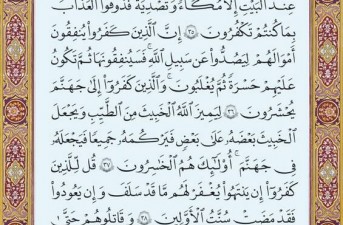 عِندَ ٱلْبَيْتِ إِلَّا مُكَآءً وَتَصْدِيَةً فَذُوقُوا۟ ٱلْعَذَابَ
بِمَا كُنتُمْ تَكْفُرُونَ ٣٥ إِنَّ ٱلَّذِينَ كَفَرُوا۟ يُنفِقُونَ
أَمْوَٰلَهُمْ لِيَصُدُّوا۟ عَن سَبِيلِ ٱللَّهِ فَسَيُنفِقُونَهَا ثُمَّ تَكُونُ
عَلَيْهِمْ حَسْرَةً ثُمَّ يُغْلَبُونَ وَٱلَّذِينَ كَفَرُوٓا۟ إِلَىٰ جَهَنَّمَ
يُحْشَرُونَ ٣٦ لِيَمِيزَ ٱللَّهُ ٱلْخَبِيثَ مِنَ ٱلطَّيِّبِ وَيَجْعَلَ
ٱلْخَبِيثَ بَعْضَهُۥ عَلَىٰ بَعْضٍ فَيَرْكُمَهُۥ جَمِيعًا فَيَجْعَلَهُۥ
فِى جَهَنَّمَ أُو۟لَٰٓئِكَ هُمُ ٱلْخَٰسِرُونَ ٣٧ قُل لِّلَّذِينَ
كَفَرُوٓا۟ إِن يَنتَهُوا۟ يُغْفَرْ لَهُم مَّا قَدْ سَلَفَ وَإِن يَعُودُوا۟
فَقَدْ مَضَتْ سُنَّتُ ٱلْأَوَّلِينَ ٣٨ وَقَٰتِلُوهُمْ حَتَّىٰ